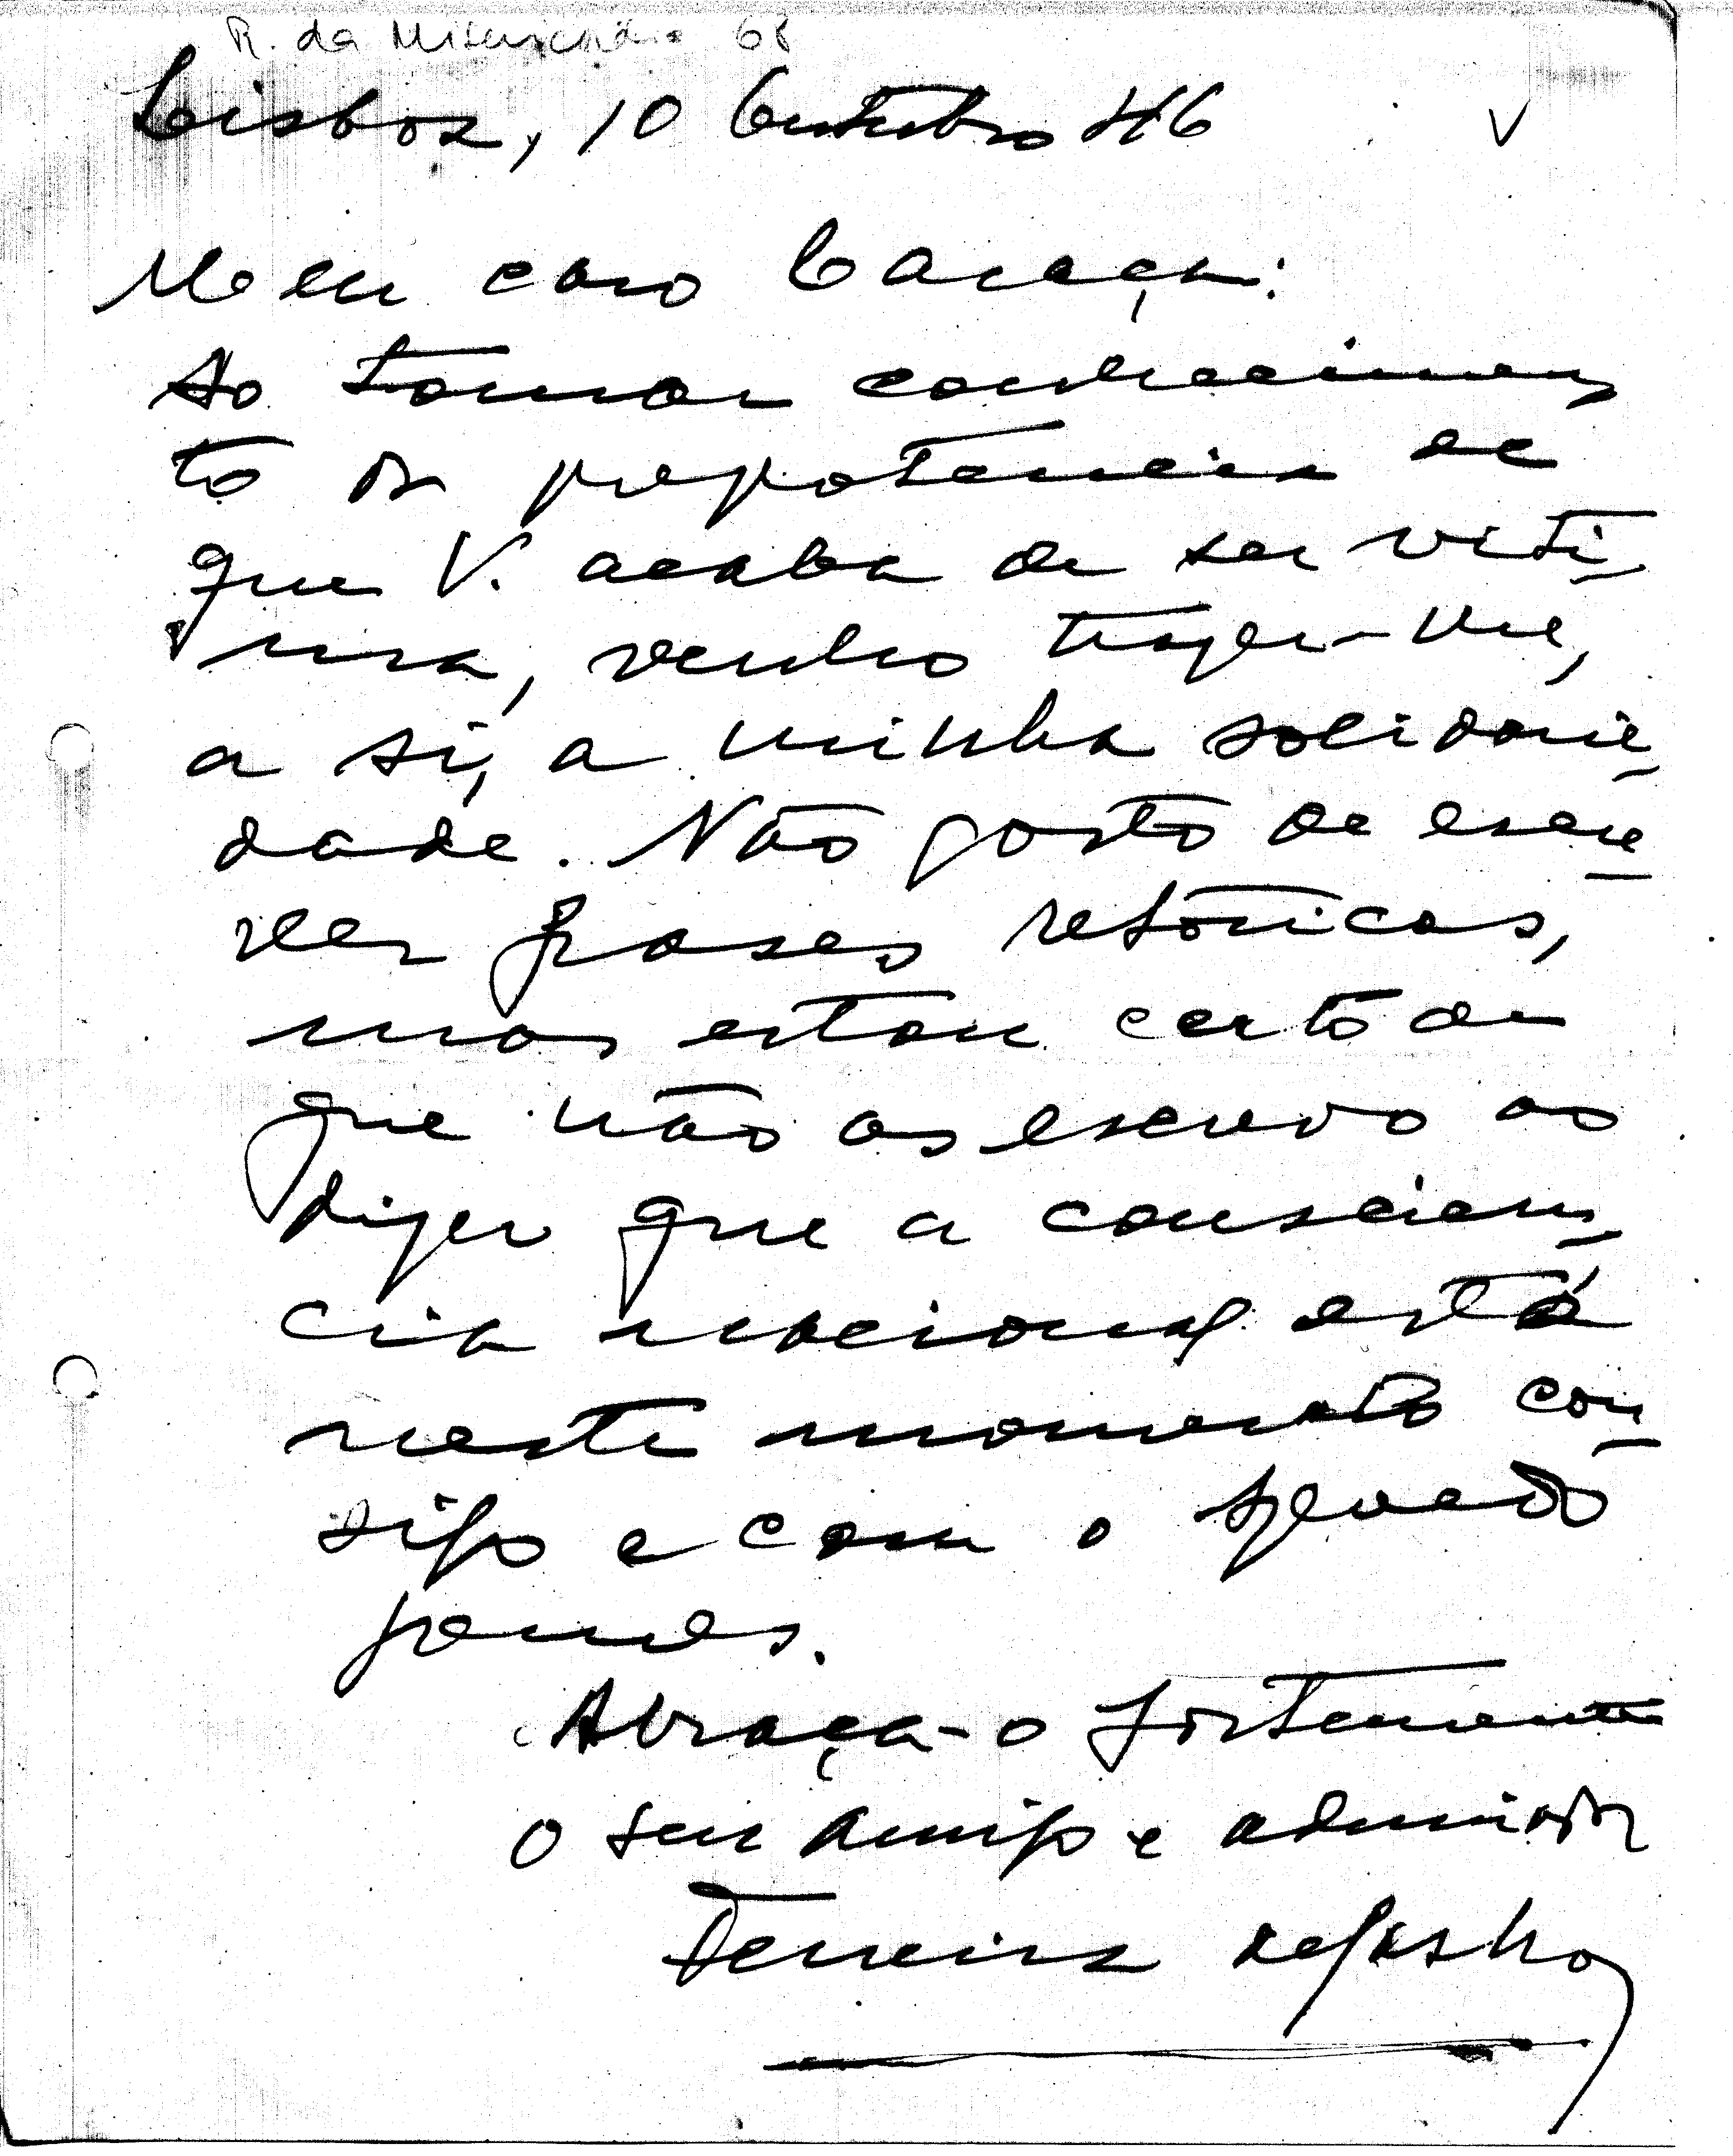 R. da Misericórdia 68
Lisboa, 10 Outubro 46
Meu caro Caraça:
Ao tomar conhecimen-
to da prepotencia de
que V. acaba de ser viti-
ma, venho trazer-lhe,
a si, a minha solidarie-
dade. Não gosto de escre-
ver frases retóricas,
mas estou certo de
que não as escrevo ao
dizer que a conscien-
cia nacional está
neste momento con-
sigo e com o Azevedo
Gomes.
Abraça-o fortemente
o seu amigo e admirador
Ferreira de Castro